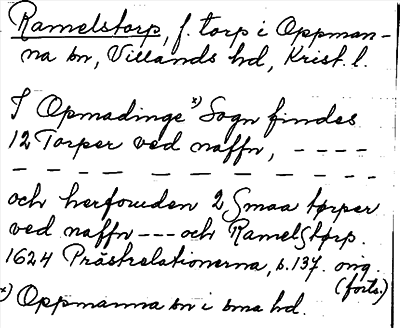 Ramelstorp, f. torp i Oppman-
na sn, Villands hd, Krist. l.
I Opmadinge x) Sogn findes
12 Torper ved naffn, ----
— — — — — — — — — —
och herforuden 2 Smaa tørper
ved naffn --- och Ramelstørp.
1624 Prästrelationerna, s. 137. orig.
(forts.)
x) Oppmanna sn i sma hd.